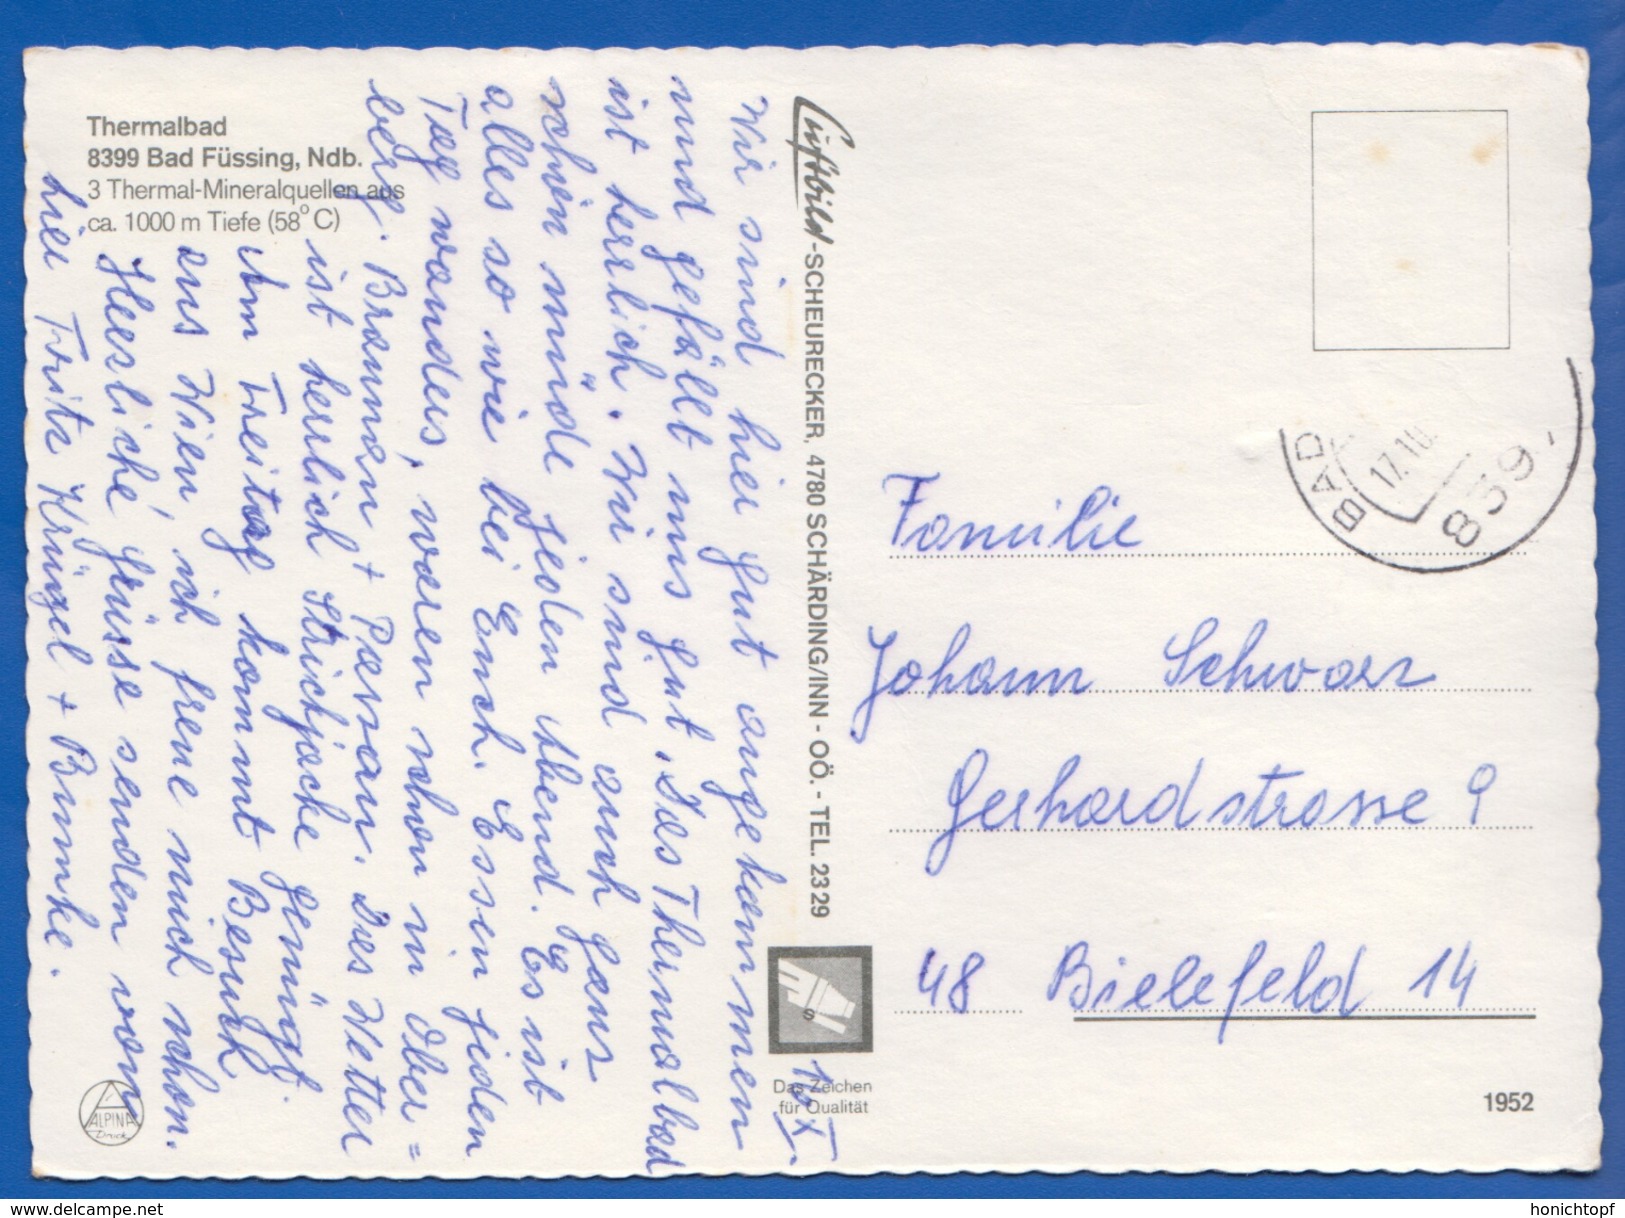 Thermalbad
8399 Bad Füssing, Ndb.
3 Thermal-Mineralquellen aus
ca. 1000 m Tiefe (58°C)
Wir sind hier gut angekommen
und gefällt uns gut. Das Thermalbad
ist herrlich. Wir sind auch ganz
schön müde jeden Abend. Es ist
alles so wie bei Euch. Essen jeden
Tag wanders, waren schon in Ober=
berg. Braunen + Passau. Das Wetter
ist herrlich Strickjacke genügt.
Am Freitag kommt Besuch
aus Wien, ich freue mich schon.
Herzliche Grüsse senden von
hier Fritz Krügel + Brunke.
Luftbild-SCHEURECKER, 4780 SCHÄRDING/INN - OÖ. - TEL. 2329
Das Zeichen
für Qualität
ALPINA
Druck
BAD
17.10.
839
Familie
Johann Schwarz
Gerhardstrasse 9
48 Bielefeld 14
1952
www.delcampe.net
honichtopf